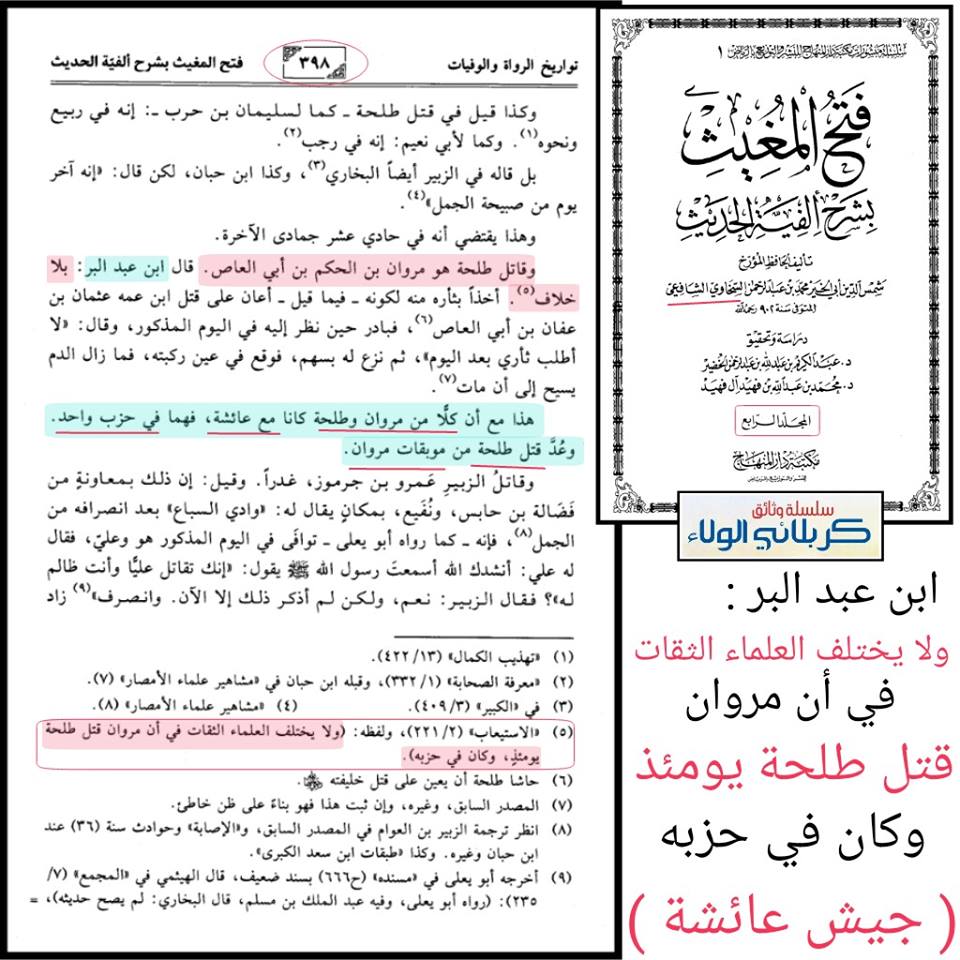 تواريخ الرواة والوفيات
٣٩٨
فتح المغيث بشرح ألفيّة الحديث
وكذا قيل في قتل طلحة ـ كما لسليمان بن حرب ـ: إنه في ربيع
ونحوه(١). وكما لأبي نعيم: إنه في رجب(٢).
بل قاله في الزبير أيضاً البخاري(٣)، وكذا ابن حبان، لكن قال: «إنه آخر
يوم من صبيحة الجمل»(٤).
وهذا يقتضي أنه في حادي عشر جمادى الآخرة.
وقاتل طلحة هو مروان بن الحكم بن أبي العاص. قال ابن عبد البر: بلا
خلاف(٥). أخذاً بثأره منه لكونه ـ فيما قيل ـ أعان على قتل ابن عمه عثمان بن
عفان بن أبي العاص(٦)، فبادر حين نظر إليه في اليوم المذكور، وقال: «لا
أطلب ثأري بعد اليوم»، ثم نزع له بسهم، فوقع في عين ركبته، فما زال الدم
يسيح إلى أن مات(٧).
هذا مع أن كلًّا من مروان وطلحة كانا مع عائشة، فهما في حزب واحد.
وعُدَّ قتل طلحة من موبقات مروان.
وقاتلُ الزبيرِ عَمرو بن جرموز، غدراً. وقيل: إن ذلك بمعاونةٍ من
فَضَالة بن حابس، ونُفَيع، بمكانٍ يقال له: «وادي السباع» بعد انصرافه من
الجمل(٨)، فإنه ـ كما رواه أبو يعلى ـ توافى في اليوم المذكور هو وعليّ، فقال
له علي: أنشدك الله أسمعتَ رسول الله ﷺ يقول: «إنك تقاتل عليًّا وأنت ظالم
له»؟ فقال الزبير: نعم، ولكن لم أذكر ذلك إلا الآن. وانصرف»(٩) زاد
(١) «تهذيب الكمال» (٤٢٢/١٣).
(٢) «معرفة الصحابة» (٣٣٢/١)، وقبله ابن حبان في «مشاهير علماء الأمصار» (٧).
(٣) في «الكبير» (٤٠٩/٣). (٤) «مشاهير علماء الأمصار» (٨).
(٥) «الاستيعاب» (٢٢١/٢)، ولفظه: (ولا يختلف العلماء الثقات في أن مروان قتل طلحة
يومئذٍ، وكان في حزبه).
(٦) حاشا طلحة أن يعين على قتل خليفته
(٧) المصدر السابق، وغيره، وإن ثبت هذا فهو بناءً على ظن خاطئ.
(٨) انظر ترجمة الزبير بن العوام في المصدر السابق، و«الإصابة» وحوادث سنة (٣٦) عند
ابن حبان وغيره. وكذا «طبقات ابن سعد الكبرى».
(٩) أخرجه أبو يعلى في «مسنده» (ح٦٦٦) بسند ضعيف، قال الهيثمي في «المجمع» (٧/
٢٣٥): (رواه أبو يعلى، وفيه عبد الملك بن مسلم، قال البخاري: لم يصح حديثه)، =
فَتْحُ المُغِيْث
بِشَرْحِ أَلْفِيَّةِ الحَدِيْثِ
تأليف الحافظ المؤرخ
شمس الدين أبي الخير محمد بن عبد الرحمن السخاوي الشافعي
المتوفى سنة ٩٠٢ رحمه الله
دراسة وتحقيق
د. عبد الكريم بن عبد الله بن عبد الرحمن الخضير
د. محمد بن عبد الله بن فهيد آل فهيد
المجلد الرابع
مكتبة دار المنهاج
للنشر والتوزيع بالرياض
سلسلة وثائق
كربلائي الولاء
ابن عبد البر :
ولا يختلف العلماء الثقات
في أن مروان
قتل طلحة يومئذ
وكان في حزبه
( جيش عائشة )